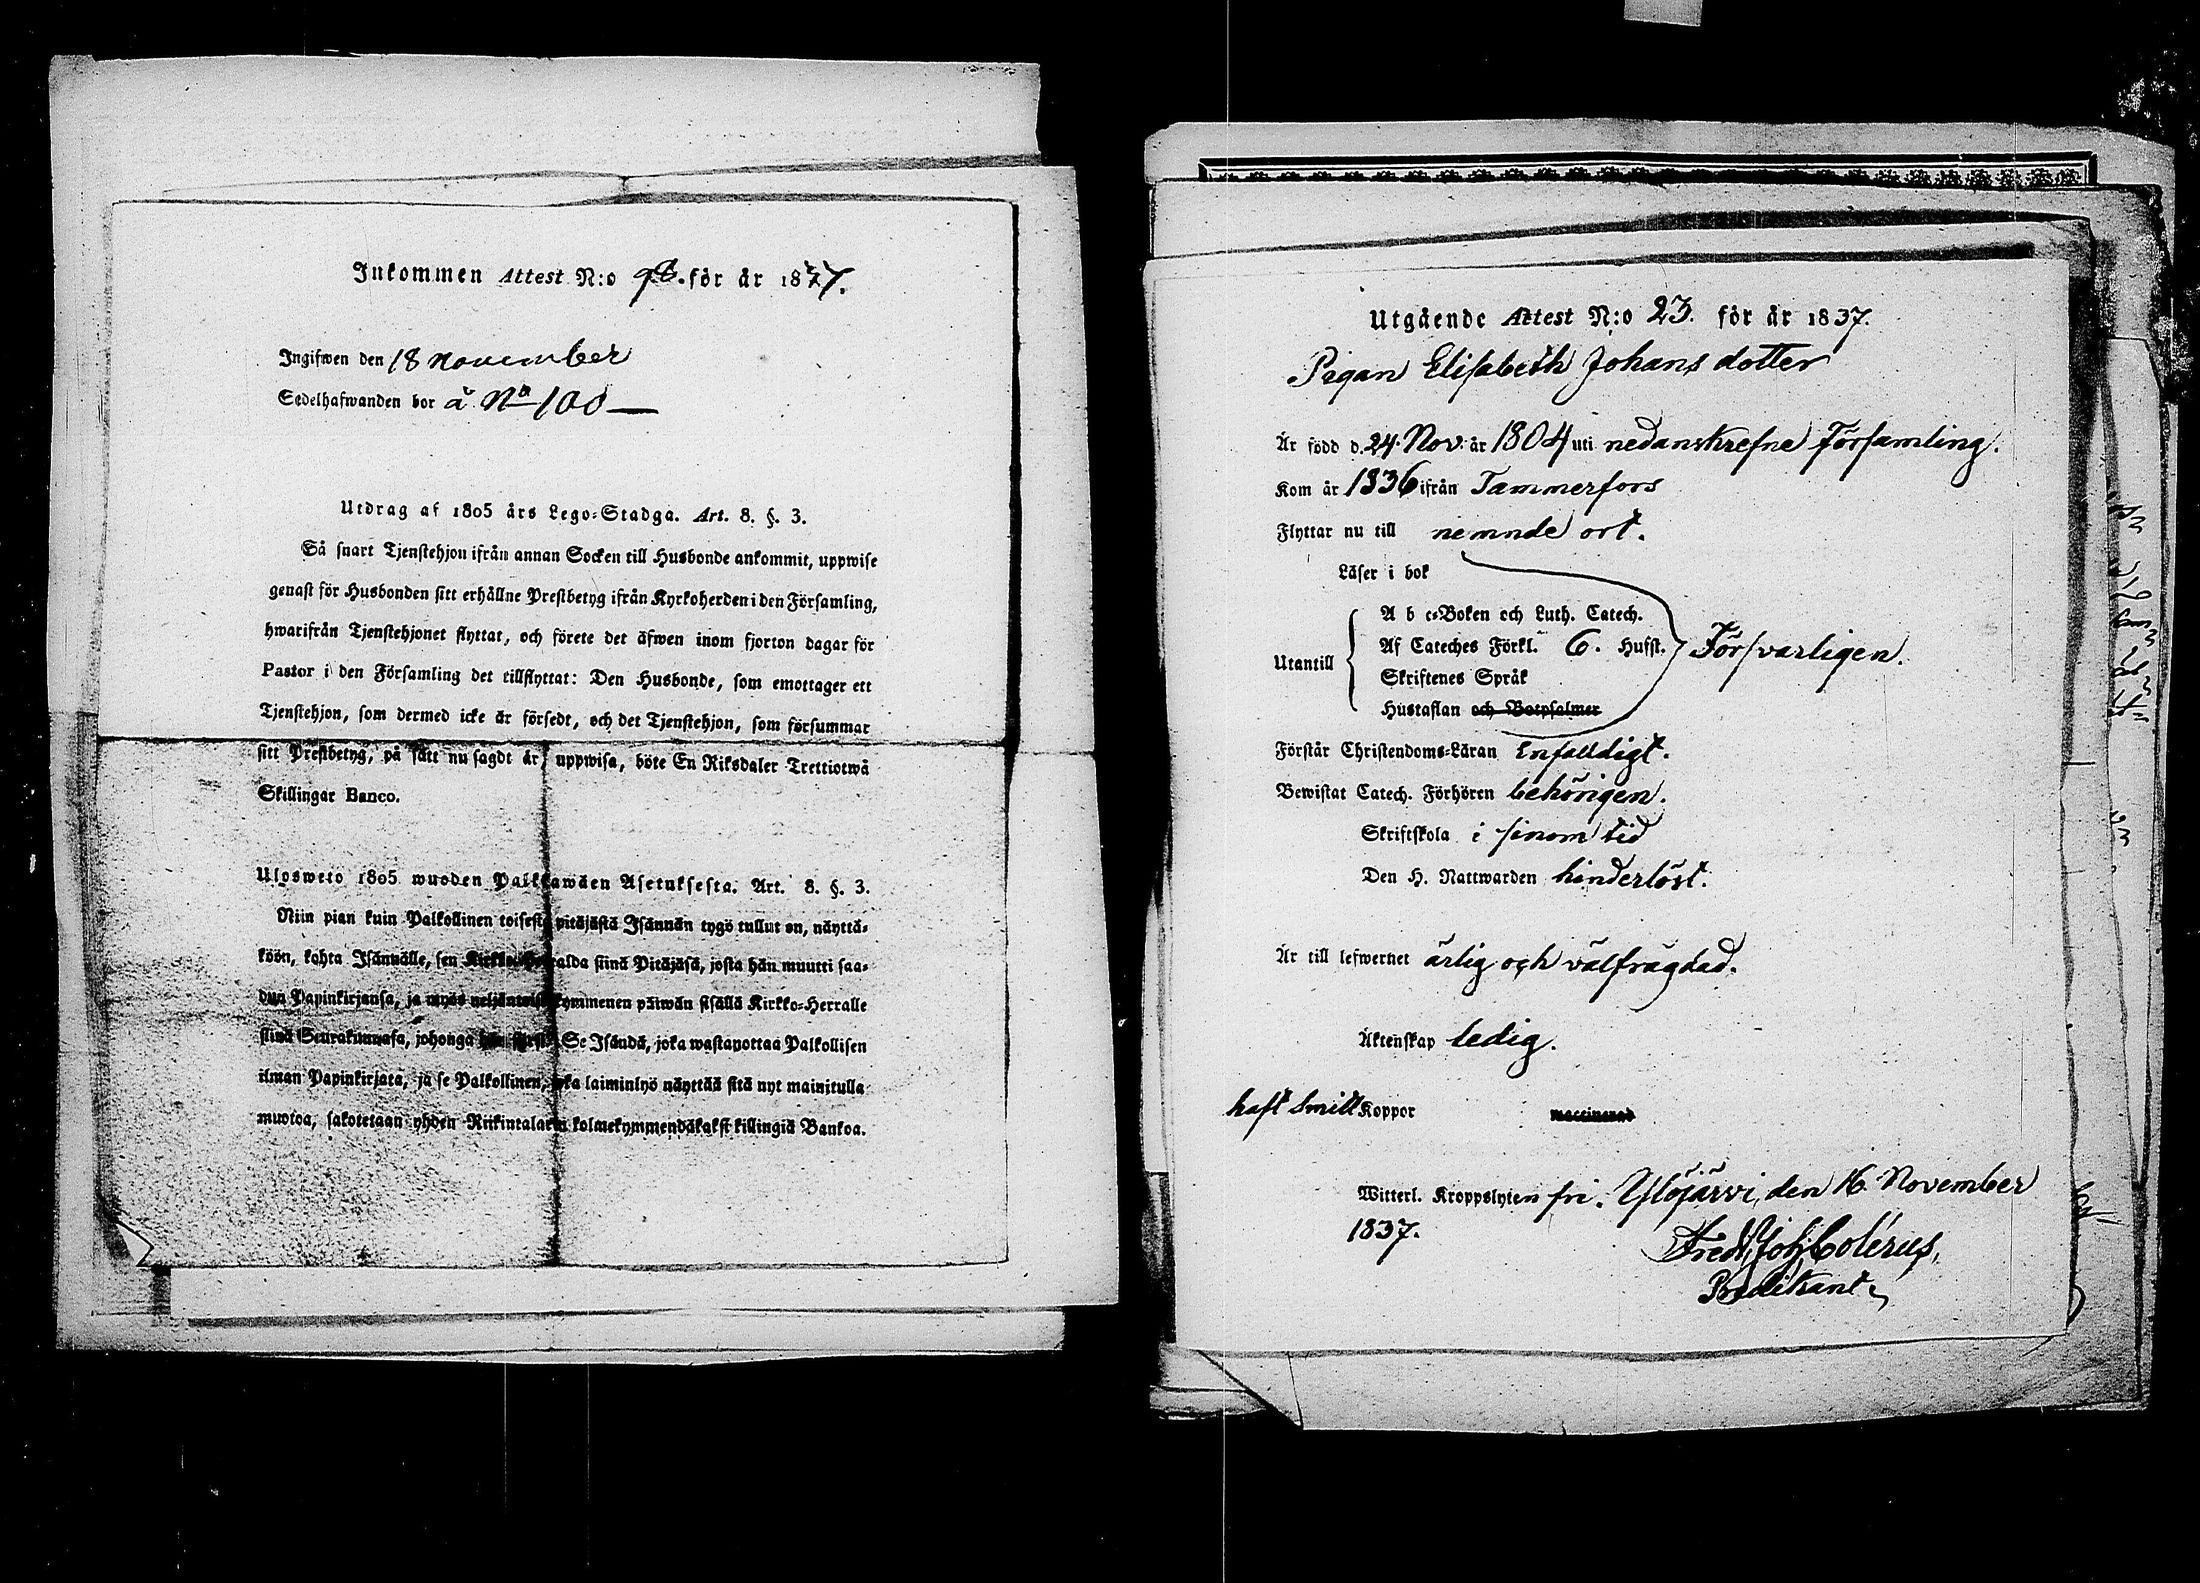 Inkommen Attest N:o 98. för år 1837.
Ingifwen den 18 november
Sedelhafwanden bor å No 100 —
Utdrag af 1805 års Lego-Stadga. Art. 8. §. 3.
Så snart Tjenstehjon ifrån annan Socken till Husbonde ankommit, uppwise
genast för Husbonden sitt erhållne Prestbetyg ifrån Kyrkoherden i den Församling,
hwarifrån Tjenstehjonet flyttat, och förete det äfwen inom fjorton dagar för
Pastor i den Församling det tillflyttat: Den Husbonde, som emottager ett
Tjenstehjon, som dermed icke är försedt, och det Tjenstehjon, som försummar
sitt Prestbetyg, på sätt nu sagdt är, uppwisa, böte En Riksdaler Trettiotwå
Skillingar Banco.
Ulosweto 1805 wuoden Palkkawäen Asetuksesta. Art. 8. §. 3.
Niin pian kuin Palkollinen toisesta pitäjästä Isännän tygö tullut on, näyttä-
köön, kohta Isännälle, sen Kirkko-Herralda siinä Pitäjäsä, josta hän muutti saa-
dun Papinkirjansa, ja myös neljäntoistakymmenen päiwän sisällä Kirkko-Herralle
siinä Seurakunnasa, johonga hän Se Isändä, joka wastanottaa Palkollisen
ilman Papinkirjata, ja se Palkollinen, joka laiminlyö näyttää sitä nyt mainitulla
muotoa, sakotetaan yhden Riikintalarin kolmekymmendäkaksi killingiä Bankoa.
Utgående Attest N:o 23. för år 1837.
Pigan Elisabeth Johans dotter
Är född d. 24. Nov. år 1804 uti nedanskrefne Församling.
Kom år 1836 ifrån Tammerfors
Flyttar nu till nemnde ort.
Läser i bok
A b c-Boken och Luth. Catech.
Af Cateches Förkl. 6. Hufst.
Utantill Försvarligen.
Skriftenes Språk
Hustaflan och Botpsalmer
Förstår Christendoms-Läran Enfalldigt.
Bewistat Catech. Förhören behörigen.
Skriftskola i sinom tid
Den H. Nattwarden hinderlöst.
Är till lefwernet ärlig och välfrägdad.
Äktenskap ledig.
haft Smitt Koppor vaccinerad
Witterl. Kroppslyten fri. Ylöjärvi, den 16 November
1837.
Fredr. Joh. Colérus,
Predikant